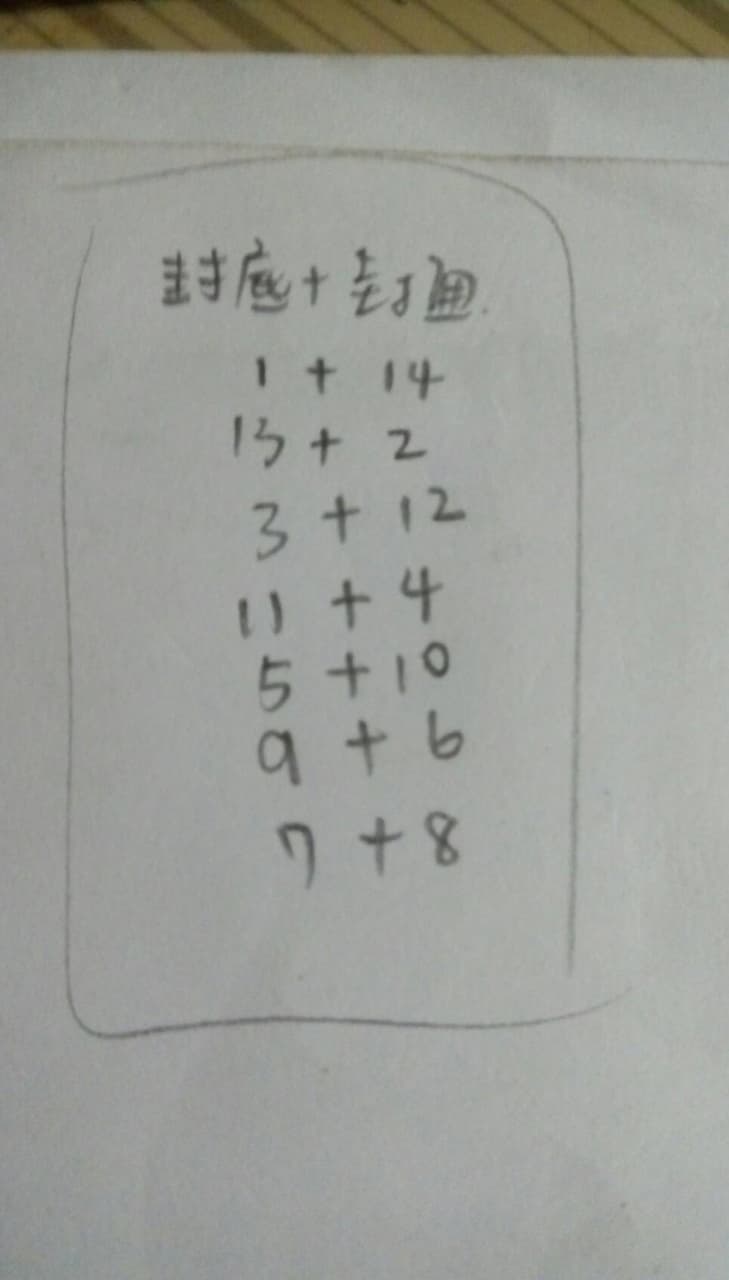 封底+封面
1 + 14
13 + 2
3 + 12
11 + 4
5 + 10
9 + 6
7 + 8